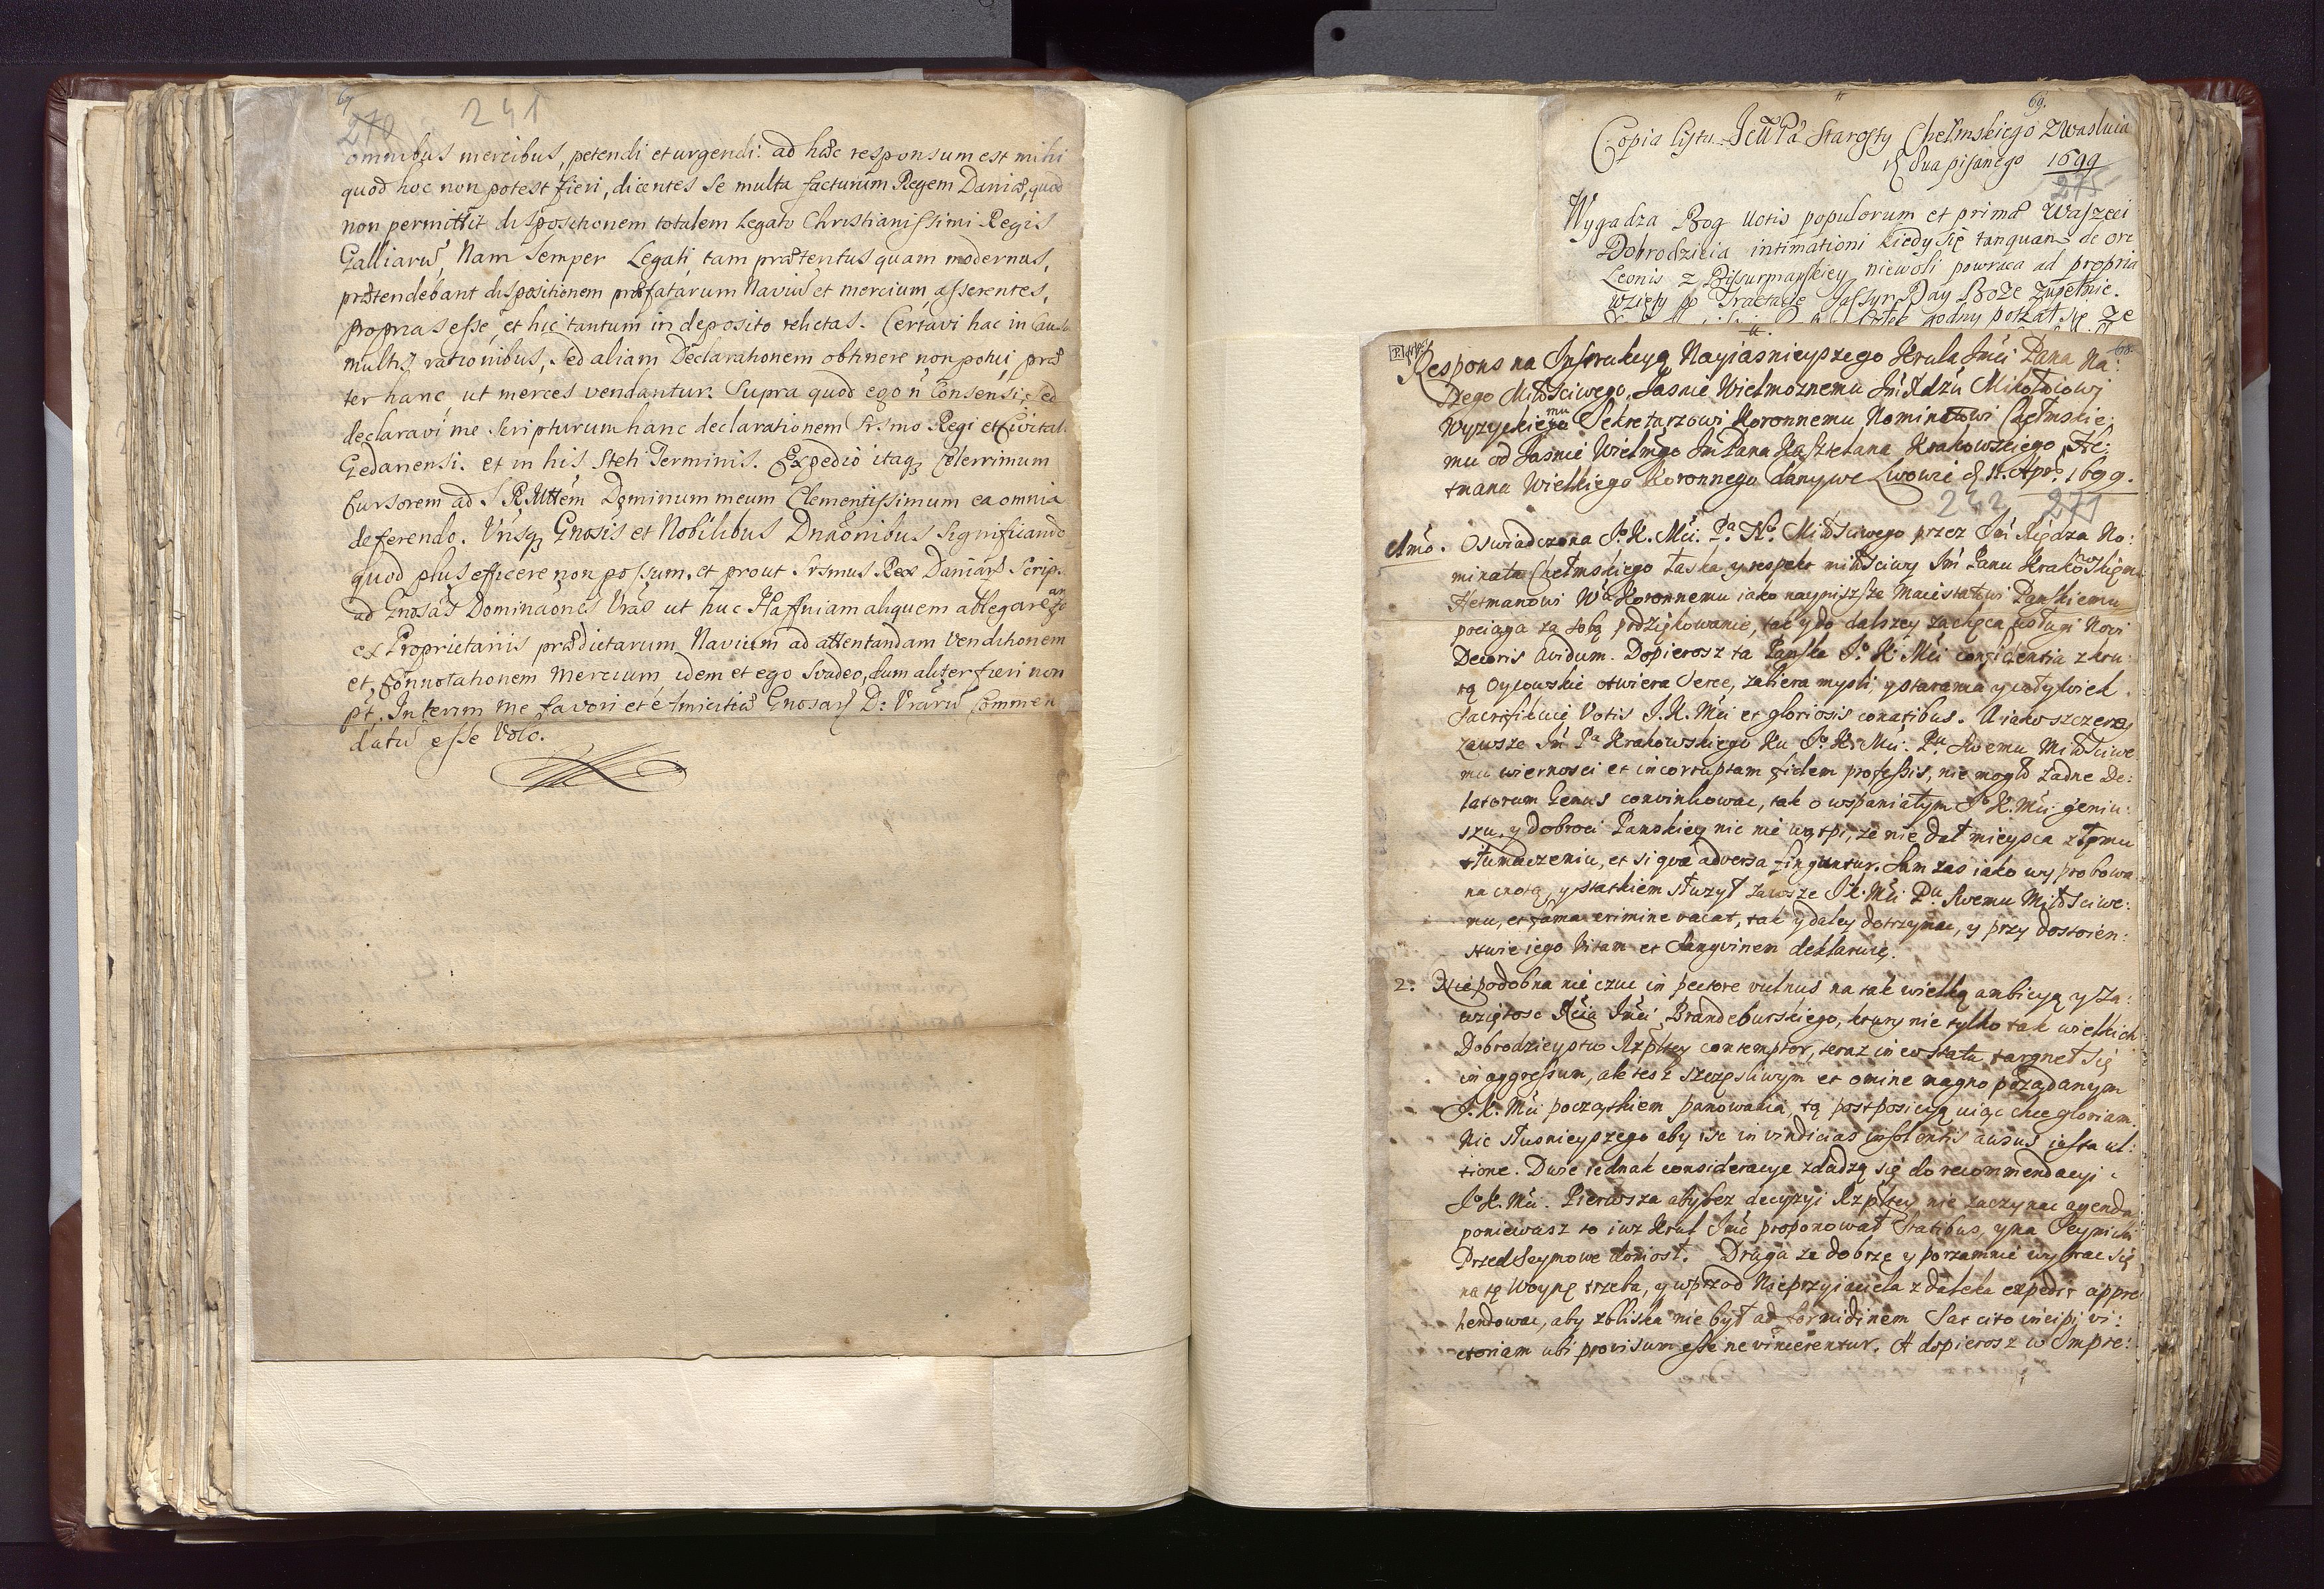 69
270 241
omnibus mercibus, petendi et urgendi: ad hæc responsum est mihi
quod hoc non potest fieri, dicentes se multa facturum Regem Daniæ, quod
non permittit dispositionem totalem Legato Christianissimi Regis
Galliarū, Nam semper Legati tam prætentus quam modernus,
prætendebant dispositionem præfatarum Naviū et mercium asserentes,
proprias esse, et hic tantum in deposito relictas. Certavi hac in
multis rationibus, sed aliam Declarationem obtinere non potui, præ
ter hanc ut merces vendantur. Supra quod ego ñ Consensi, sed
declaravi me scripturum hanc declarationem Srsmo Regi et Civitati
Gedanensi. et in his steti Terminis. Expedio itaq; Celerrimum
Cursorem ad S. R. Mttem Dominum meum Clementissimum ea omnia
deferendo. Vrisq; Gnosis et Nobilibus Dnaonibus significando
quod plus efficere non possum, et prout Srsmus Rex Daniæ scrip
ad Gnosas Dominaones Vras ut huc Haffniam aliquem ablegare
ex Proprietariis prædictarum Navium ad attentandam Venditionem
et connotationem mercium, idem et ego svadeo, dum aliter fieri non
pt. Interim me favori et Amicitiæ Gnosarū D: Vrarū Commen
datū esse volo.
69.
Copia listu Jeū Pā Starosty Chełmskiego
pisanego 1699
275
Wygadza Bog votis populorum et primæ Waszeci
Dobrodzieia intimationi kiedy się tanquam de ore
Leonis z Bisurmanskiey niewoli powraca ad propria
wzięty po Tractacie Day Boże zupełnie.
godny pokazał się że
68.
Respons na Instrukcyą Nayiasnieyszego Krula Jmći Pana Na:
szego Miłościwego, Jasnie Wielmoznemu Jmći Xdzū Mikołaiowi
Wyzyckiemu Sekretarzowi Koronnemu Nominatowi Chełmskie
mu od Jasnie Wielmgo Jm Pana Kasztelana Krakowskiego, He:
tmana Wielkiego Koronnego dany we Lwowie d. 11. Apr: 1699.
242 271
Imo. Oswiadczona Jo. K. Mći. Pa. No. Miłościwego przez Jmi Xiędza No:
minata Chełmskiego łaska y respekt miłościwy Jm Panu Krakowskiemu
Hetmanowi Wu Koronnemu iako nayniższe Maiestatowi Panskiemu
pociąga za sobą podziękowanie, tak y do dalszey zachęca usługi Novi
Decoris avidum. Dopierosz ta Panska Jo K Mći confidentia zkru
tą Oycowskie otwiera Serce, zabiera mysli, y starania y cotylwiek
sacrifikuie Votis J. K. Mći et gloriosis conatibus. A iako szczerey
zawsze Jm Pa Krakowskiego ku Jo. K. Mći. Pu. swemu Miłościwe
mu wiernosci et incorruptam fidem professis, nie mogło żadne De:
latorum genus convinkowac, tak o wspaniałym Jo K. Mći geniu:
szu, y dobroci Panskiey nic nie wątpi, ze nie dał mieysca złemu
tłumaczeniu, et si quæ adversa finguntur. Sam zas iako wyprobowa
na cnotą, y statkiem słuzył zawsze J. K. Mći Pu. Swemu Miłościwe:
mu, et fama crimine vacat, tak y daley dotrzymac, y przy dostoien:
stwie iego Vitam et Sangvinem deklaruie.
2. Niepodobna nie czuc in pectore vulnus na tak wielką ambicyą y za:
wziętosc Xcia Jmći Brandeburskiego, ktury nie tylko tak wielkich
Dobrodzieystw Rzpltey contemptor, teraz in eo statu targneł się
in aggressum, ale tesz szczęsliwym et omine magno pożądanym
J. K. Mći początkiem panowania, tą postposicyą uiąc chce gloriam.
Nic słusnieyszego aby isc in vindicias insolentis ausus iusta ul:
tione. Dwie iednak consideracye zdadzą się do recommendacyi
Jo K. Mći. Pierwsza aby bez decyzyi Rzpltey nie zaczynac agenda
poniewasz to iuz Krul Jmć proponował Statibus, y na Seymiki
Przed Seymowe doniosł. Druga ze dobrze y porzamnie wybrac się
na tę Woynę trzeba, y wprzod Nieprzyiaciela z daleka expedit appre
hendowac, aby zbliska nie był ad formidinem Sat cito incipi vi:
ctoriam ubi provisum esse ne vincerentur. A dopierosz w Impre: